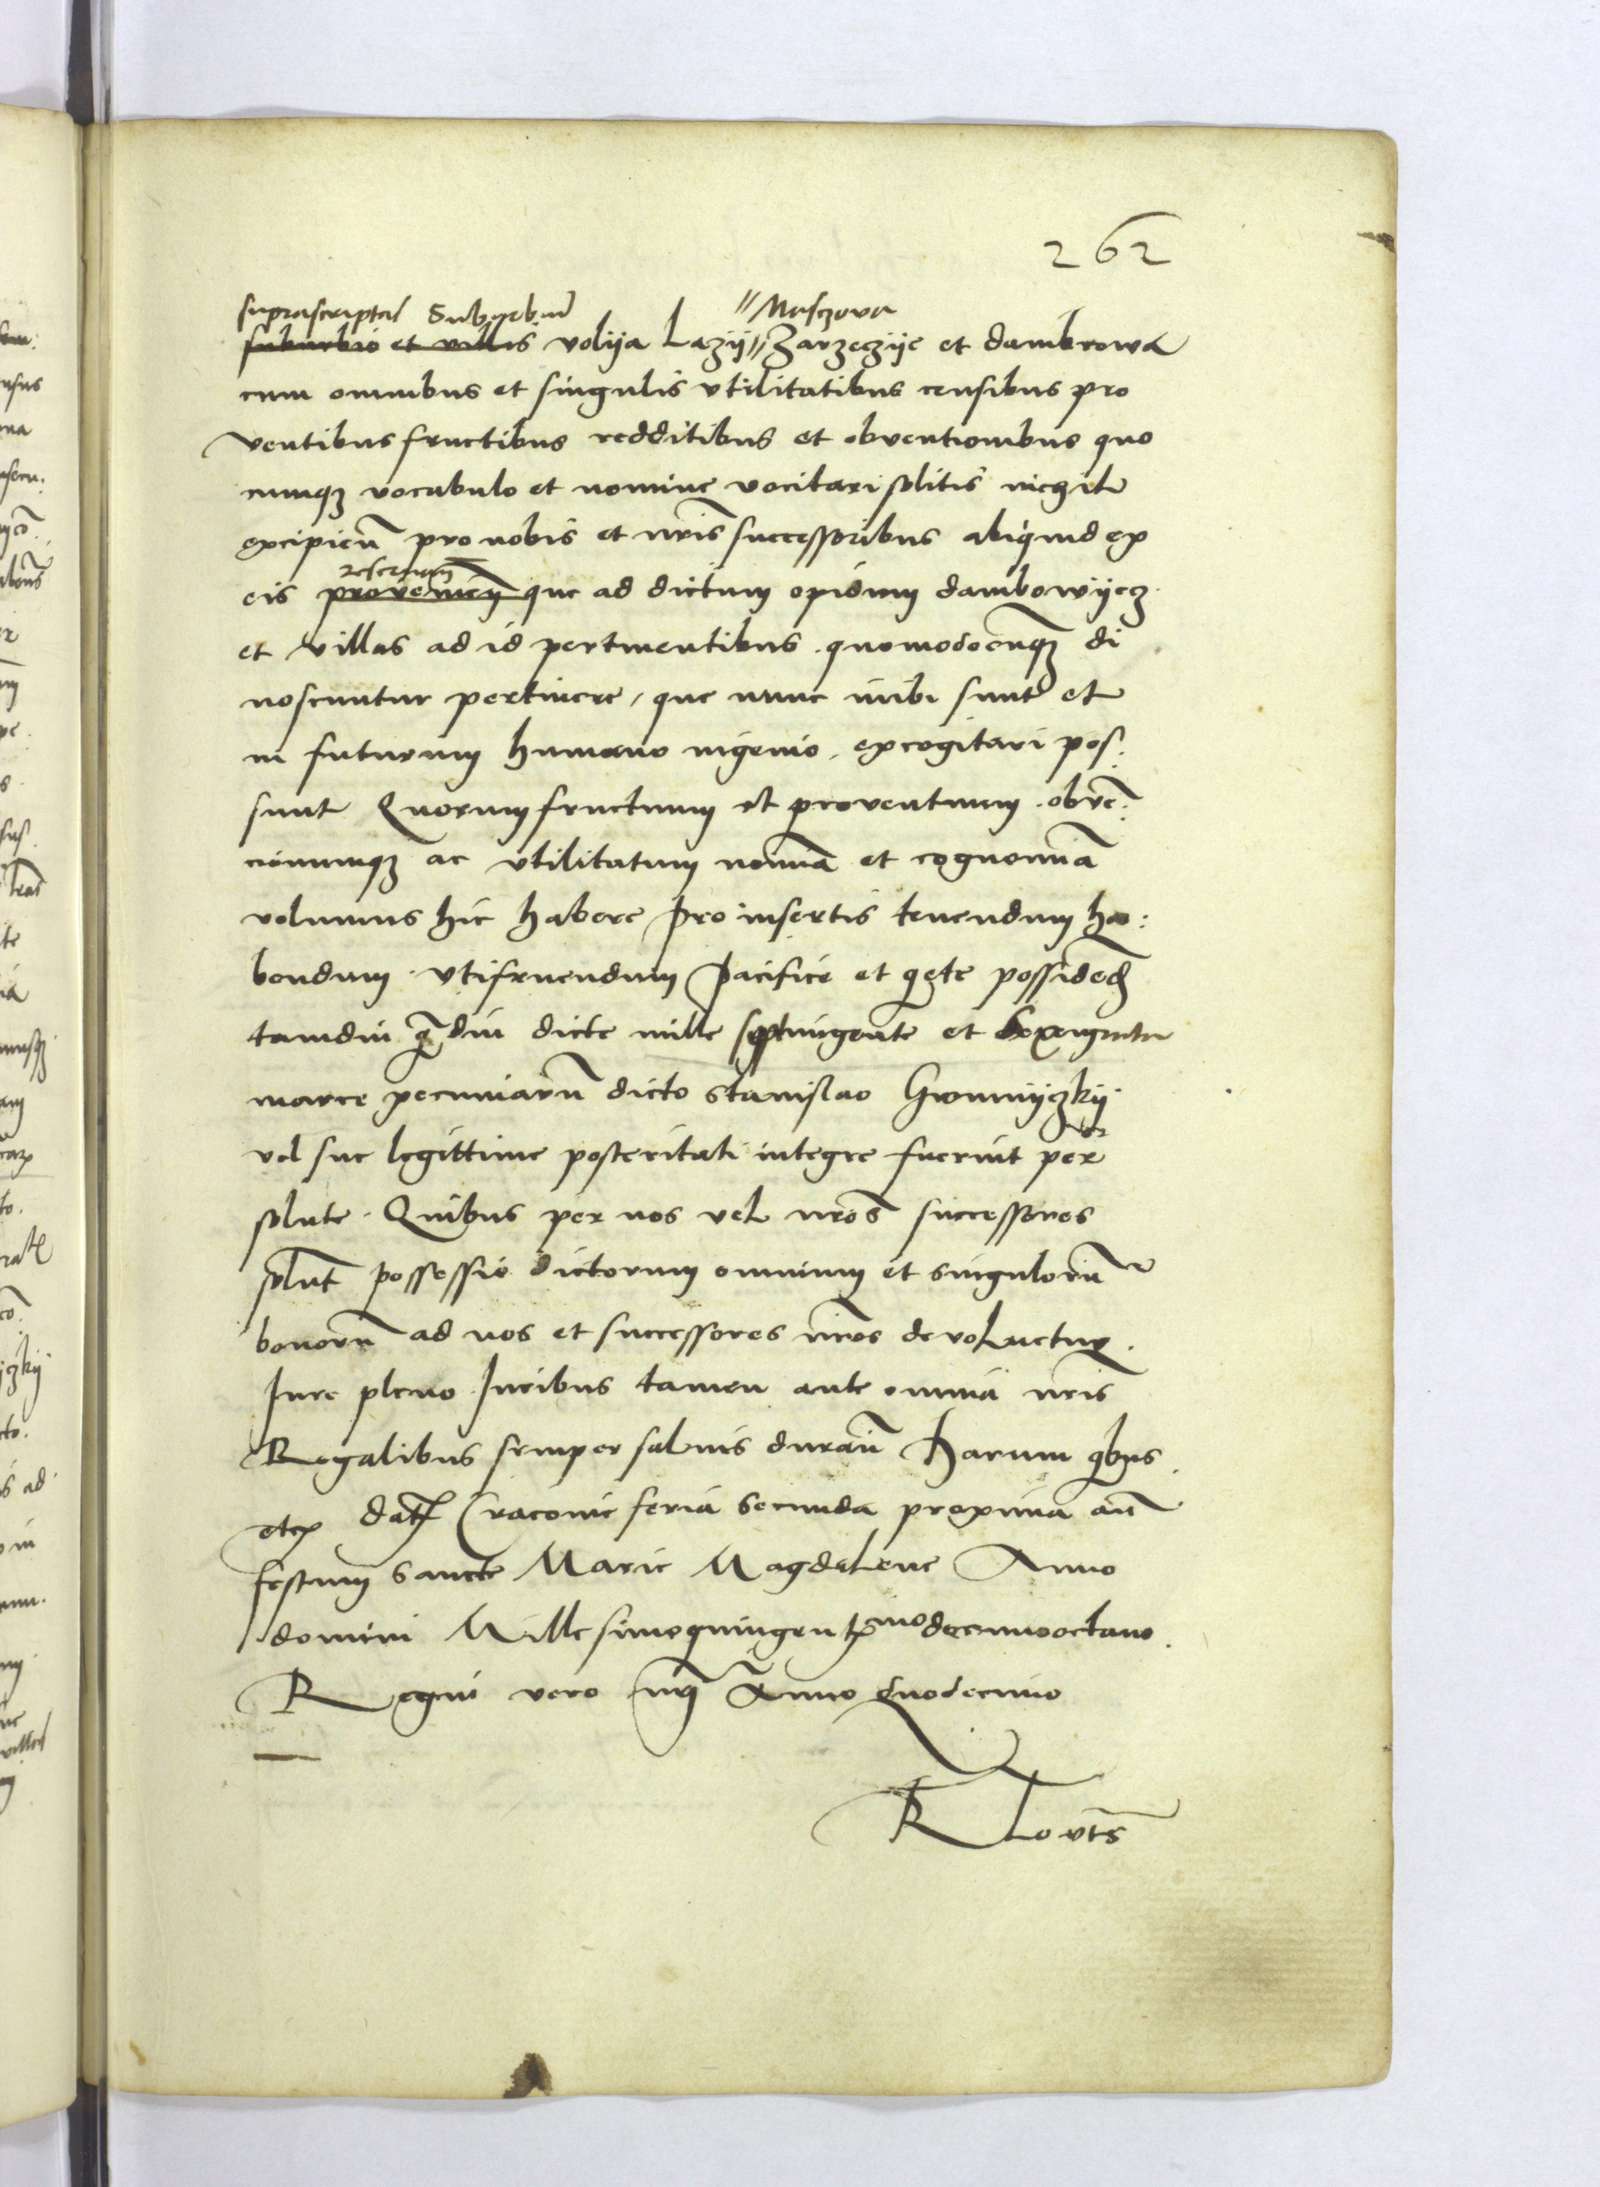 262
suprascriptis // Maschova
suburbio et villis volya Lazy // Zarzeczye et dambrowa
cum omnibus et singulis vtilitatibus censibus pro
ventibus fructibus redditibus et obventionibus quo
cunqz vocabulo et nomine vocitari solitis nichil
excipien pro nobis et nris successoribus aliquid ex
eis que ad dictum opidum dambowyecz
et villas ad id pertinentibus quomodocunqz di
noscuntur pertinere, que nunc inibi sunt et
in futurum humano ingenio excogitari pos:
sunt Quorum fructuum et proventuum obve:
cionumqz ac vtilitatum nomina et cognomina
volumus hic habere pro insertis tenendum ha:
bendum vtifruendum pacifice et qete possidend
tamdiu q diu dicte mille septingente et sexaginta
marce pecuniaru dicto stanislao
vel sue legittime posteritati integre fuerint per
solute. Quibus per nos vel nros successores
solut possessio dictorum omnium et singuloru
bonoru ad nos et successores nros devoluetur.
Jure pleno Juribus tamen ante omnia nris
Regalibus semper saluis duran Harum qbus
etc dat Cracovie feria secunda proxima an
festum sancte Marie Magdalene Anno
domini Millesimoquingentmo decimooctavo
Regni vero nri Anno duodecimo
R